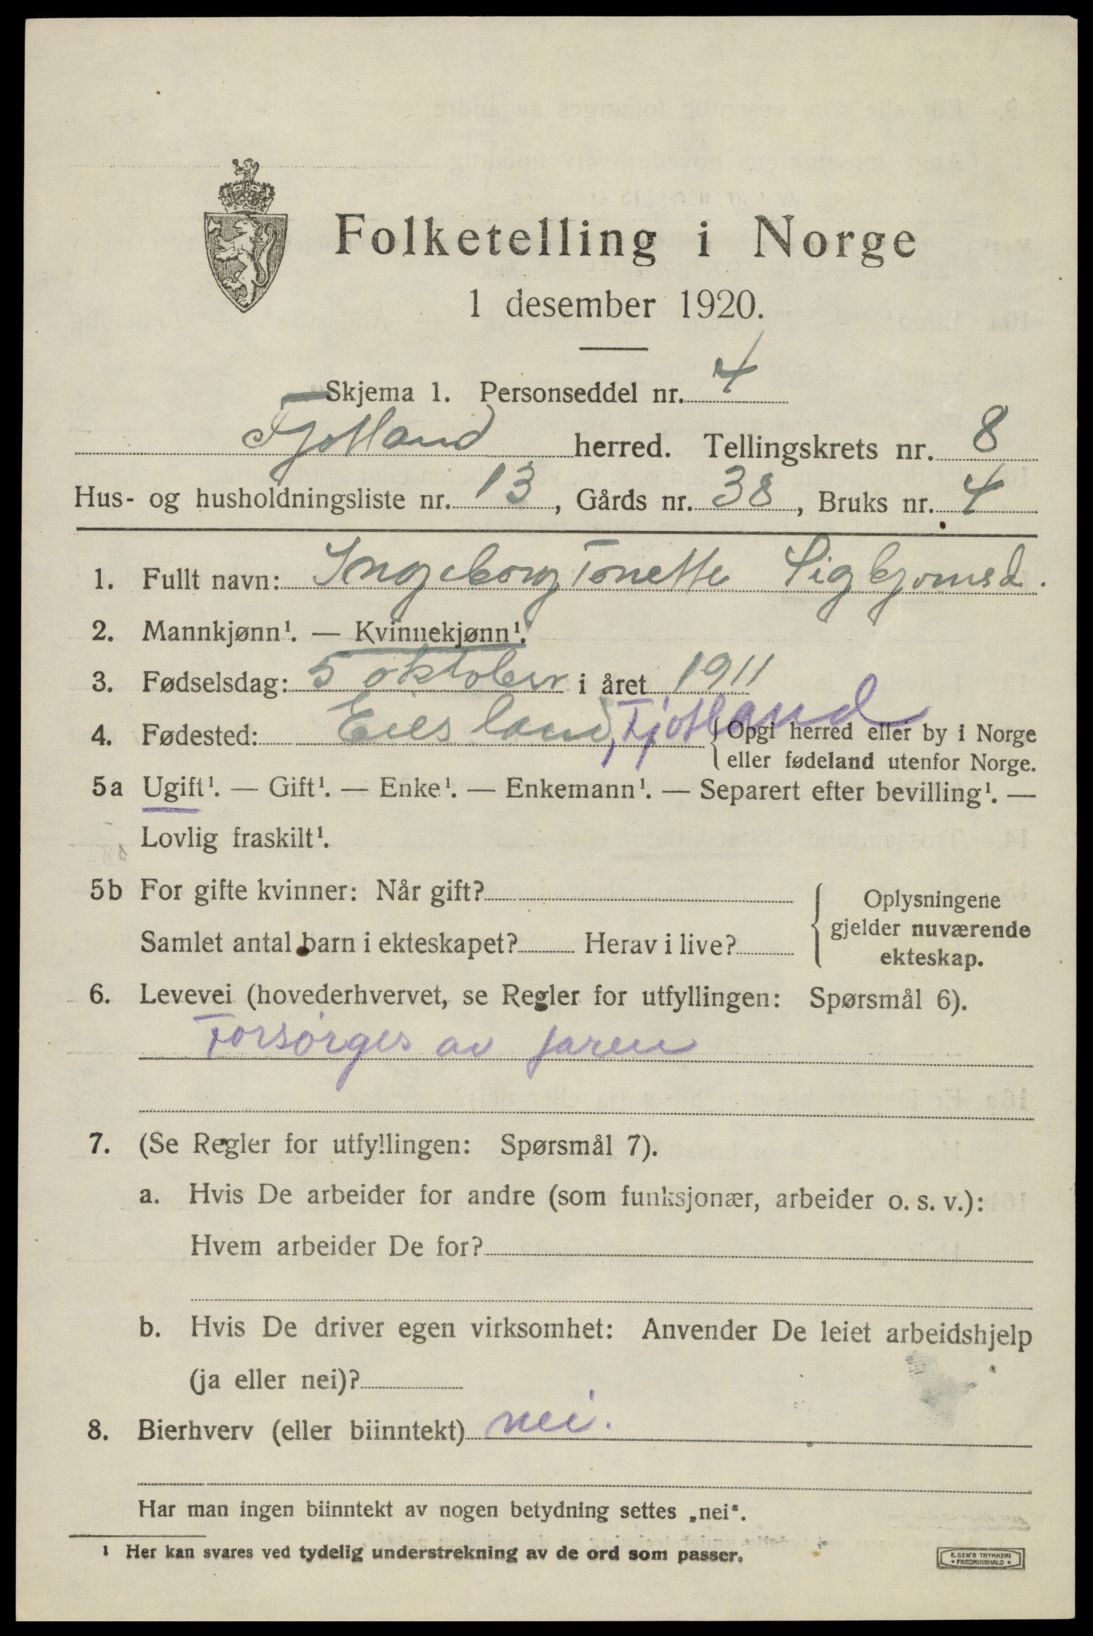 Folketelling i Norge
1 desember 1920.
Skjema 1. Personseddel nr. 4
Fjotland herred. Tellingskrets nr. 8
Hus- og husholdningsliste nr. 13, Gårds nr. 38, Bruks nr. 4
1. Fullt navn: Ingeborg Tonette Sigbjørnsd.
2. Mannkjønn¹. — Kvinnekjønn¹.
3. Fødselsdag: 5 oktober i året 1911
4. Fødested: Eiesland, Fjotland {Opgi herred eller by i Norge
eller fødeland utenfor Norge.
5a Ugift¹. — Gift¹. — Enke¹. — Enkemann¹. — Separert efter bevilling¹. —
Lovlig fraskilt¹.
5b For gifte kvinner: Når gift?
Samlet antal barn i ekteskapet? Herav i live?
Oplysningene
gjelder nuværende
ekteskap.
6. Levevei (hovederhvervet, se Regler for utfyllingen: Spørsmål 6).
Forsørges av faren
7. (Se Regler for utfyllingen: Spørsmål 7).
a. Hvis De arbeider for andre (som funksjonær, arbeider o. s. v.):
Hvem arbeider De for?
b. Hvis De driver egen virksomhet: Anvender De leiet arbeidshjelp
(ja eller nei)?
8. Bierhverv (eller biinntekt) nei.
Har man ingen biinntekt av nogen betydning settes „nei“.
¹ Her kan svares ved tydelig understrekning av de ord som passer.
E. SEM'S TRYKKERI
FREDRIKSHALD